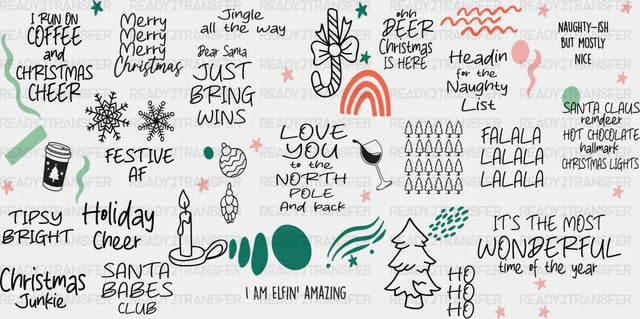 I RUN ON
COFFEE
and
CHRISTMAS
CHEER
Merry
Merry
Merry
Christmas
Jingle
all the way
Dear Santa
JUST
BRING
WINS
ohh
DEER
Christmas
IS HERE
Headin
for the
Naughty
List
NAUGHTY-ISH
BUT MOSTLY
NICE
SANTA CLAUS
reindeer
HOT CHOCOLATE
hallmark
CHRISTMAS LIGHTS
FESTIVE
AF
LOVE
YOU
to the
NORTH
POLE
And back
FALALA
LALALA
LALALA
TIPSY
BRIGHT
Holiday
Cheer
Christmas
Junkie
SANTA
BABES
CLUB
I AM ELFIN' AMAZING
HO
HO
HO
IT'S THE MOST
WONDERFUL
time of the year
READY2TRANSFER